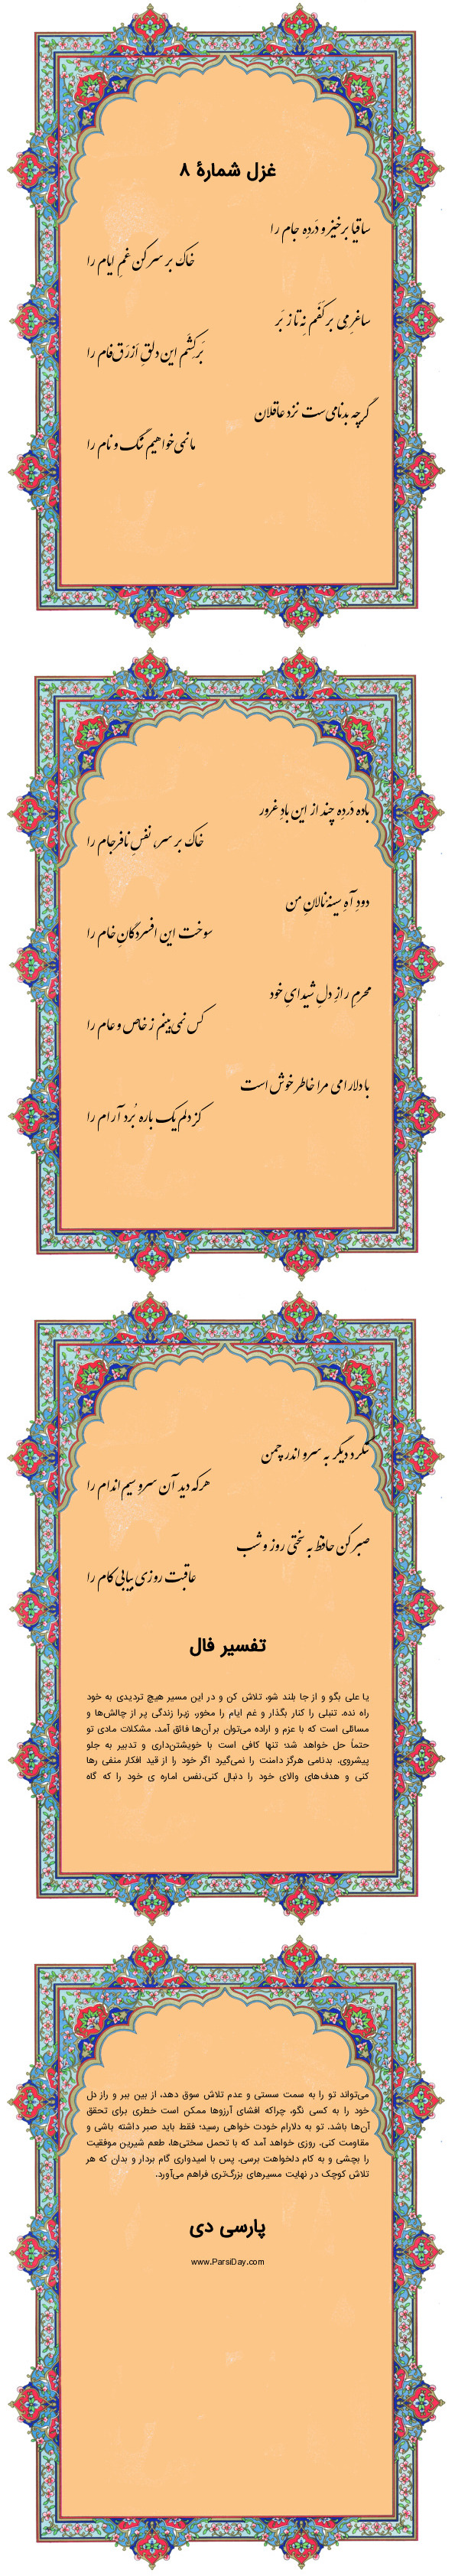 غزل شمارهٔ ۸
ساقیا برخیز و دَردِه جام را
خاک بر سر کن غمِ ایام را
ساغرِ مِی بر کَفَم نِه تا ز بَر
بَرکِشَم این دلقِ اَزرَق‌فام را
گرچه بدنامی‌ست نزد عاقلان
ما نمی‌خواهیم ننگ و نام را
باده دَردِه چند از این بادِ غرور
خاک بر سر، نفسِ نافرجام را
دودِ آهِ سینهٔ نالانِ من
سوخت این افسردگانِ خام را
محرمِ رازِ دلِ شیدایِ خود
کس نمی‌بینم ز خاص و عام را
با دلارامی مرا خاطر خوش است
کز دلم یک باره بُرد آرام را
ننگرد دیگر به سرو اندر چمن
هرکه دید آن سروِ سیم‌اندام را
صبر کن حافظ به سختی روز و شب
عاقبت روزی بیابی کام را
تفسیر فال
یا علی بگو و از جا بلند شو، تلاش کن و در این مسیر هیچ تردیدی به خود
راه نده. تنبلی را کنار بگذار و غم ایام را مخور، زیرا زندگی پر از چالش‌ها و
مسائلی است که با عزم و اراده می‌توان بر آن‌ها فائق آمد. مشکلات مادی تو
حتماً حل خواهد شد؛ تنها کافی است با خویشتن‌داری و تدبیر به جلو
پیشروی. بدنامی هرگز دامنت را نمی‌گیرد اگر خود را از قید افکار منفی رها
کنی و هدف‌های والای خود را دنبال کنی.نفس اماره ی خود را که گاه
می‌تواند تو را به سمت سستی و عدم تلاش سوق دهد، از بین ببر و راز دل
خود را به کسی نگو، چراکه افشای آرزوها ممکن است خطری برای تحقق
آن‌ها باشد. تو به دلارام خودت خواهی رسید؛ فقط باید صبر داشته باشی و
مقاومت کنی. روزی خواهد آمد که با تحمل سختی‌ها، طعم شیرین موفقیت
را بچشی و به کام دلخواهت برسی. پس با امیدواری گام بردار و بدان که هر
تلاش کوچک در نهایت مسیرهای بزرگ‌تری فراهم می‌آورد.
پارسی دی
www.ParsiDay.com